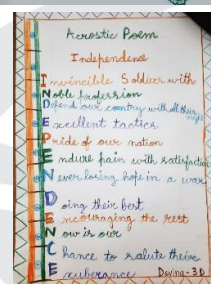 Acrostic Poem
Independence
Invincible Soldiers with
Noble profession
Defend our country with all their might
Excellent tactics
Pride of our nation
Endure pain with satisfaction
Never losing hope in a war
Doing their best
Encouraging the rest
Now is our
Chance to salute their
Exuberance
Devina-3D